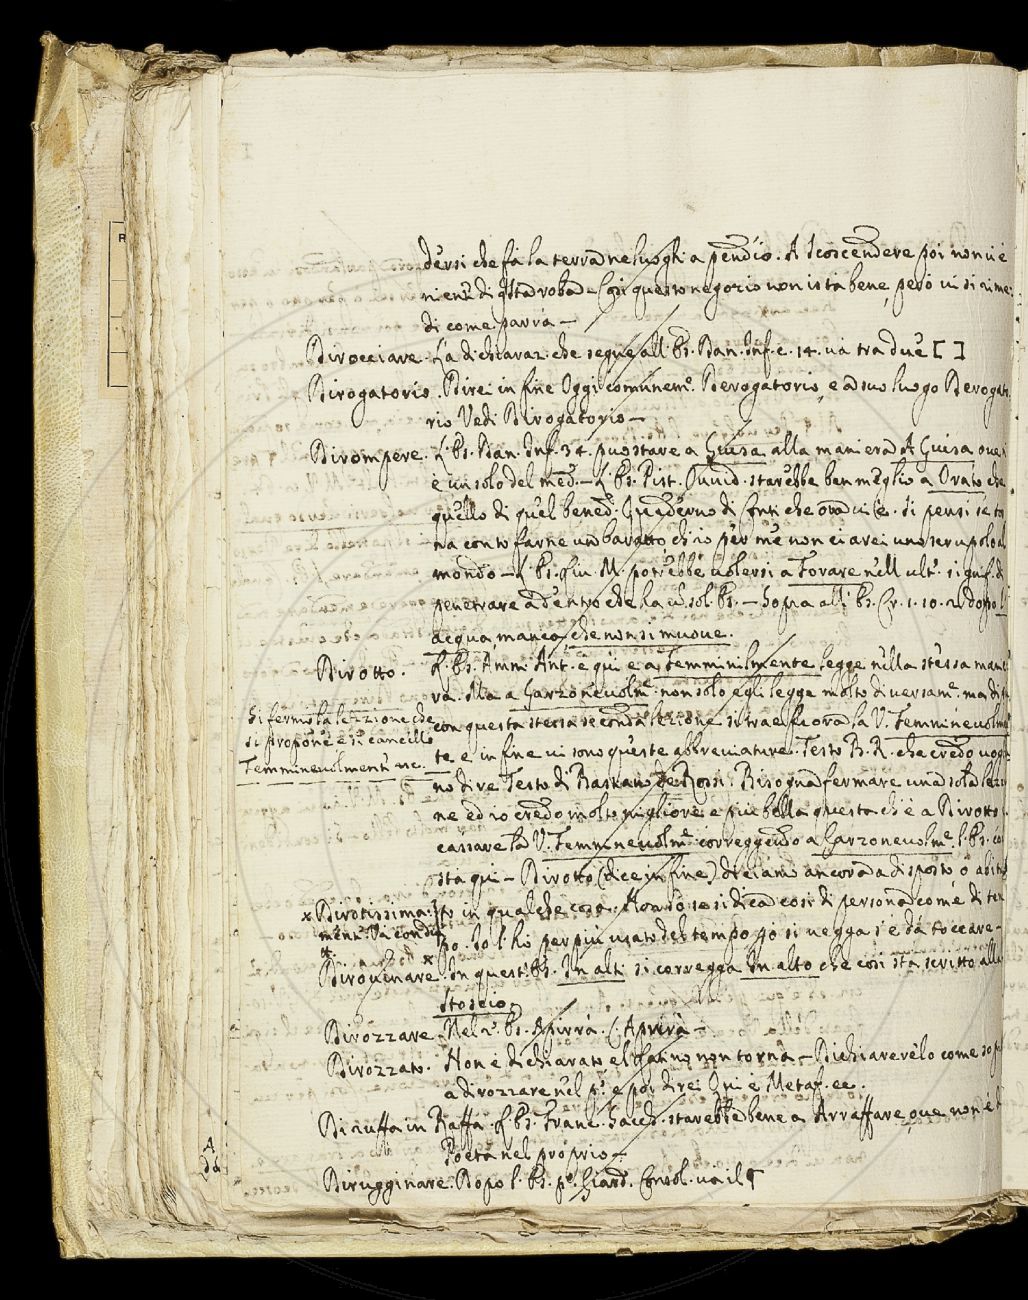 dersi che fà la terra ne luoghi a pendio. A scoscendere poi non v'è
niente di qsta roba. Così questo negozio non istà bene, però vi si rime:
di come parrà —
Dirocciare. La dichiaraz: che segue all Es. Dan. Inf. c. 14. và tra due [ ]
Dirogatorio. Direi in fine Oggi comunem.e Derogatorio, e a suo luogo Derogato
rio Vedi Dirogatorio —
Dirompere. L'Es. Dan. Inf. 34. può stare a Guisa alla maniera A Guisa ove
è un solo del med. — L'Es. Pist. Ovvid. starebbe ben meglio a Orato che
quello di quel bened. Quaderno di Conti che ora vi è. Si pensi se tor
na conto farne un baratto, ch'io per me non ci arei uno scrupolo al
mondo — L'Es. Liv. M. potrebbe volersi a Forare nell ult. signif. di
penetrare a dentro che ha un sol Es. — Sopra all' Es. Cr. 1. 10. 2. dopo l'
acqua, manca, che non si muove.
Dirotto. L'Es. Amm. Ant. è quì e a Femminilmente legge nella stessa manie
ra. Ma a Garzonevolm.e non solo egli legge molto diversam.e ma di più
con questa stessa seconda lezione si trae fuora la V. Femminevolmen
te e in fine vi sono queste abbreviature. Testo B. R. che credo vogli
no dire Testo di Bastiano de Rossi. Bisogna fermare una sola lezio
ne ed io credo molto migliore e più bella questa ch'è a Dirotto.
cassare la V. Femminevolm.e correggendo a Garzonevolm.e l'Es. co
sta quì — Dirotto (dice in fine) diciamo ancora a disposto, o abitua
Si fermi la lezzione che
si propone e si cancelli
Femminevolmente ec.
to in qualche cosa. Guardo se si dica così di persona come di tem
po. Io l'hò per più usato del tempo però si vegga s'è da toccare —
× Dirotissima:
mente. Và condut
Dirovinare. In quest'Es. In alti si corregga In alto che così stà scritto alla
Stoscio.
Dirozzare. Nel 2.° Es. Apirrà. L. Aprirà —
Dirozzato. Non è dichiarato, el Latino non torna — Dichiarerelo come sop
a dirozzare nel p.° e poi direi Qui è Metaf. ec.
Diruffa in Raffa. L'Es. Franc. Sacch. starebbe bene a Arraffare, ove non è l
Poeta nel proprio —
Dirugginare. Dopo l'Es. p.° Giard. Consol. va il ¶